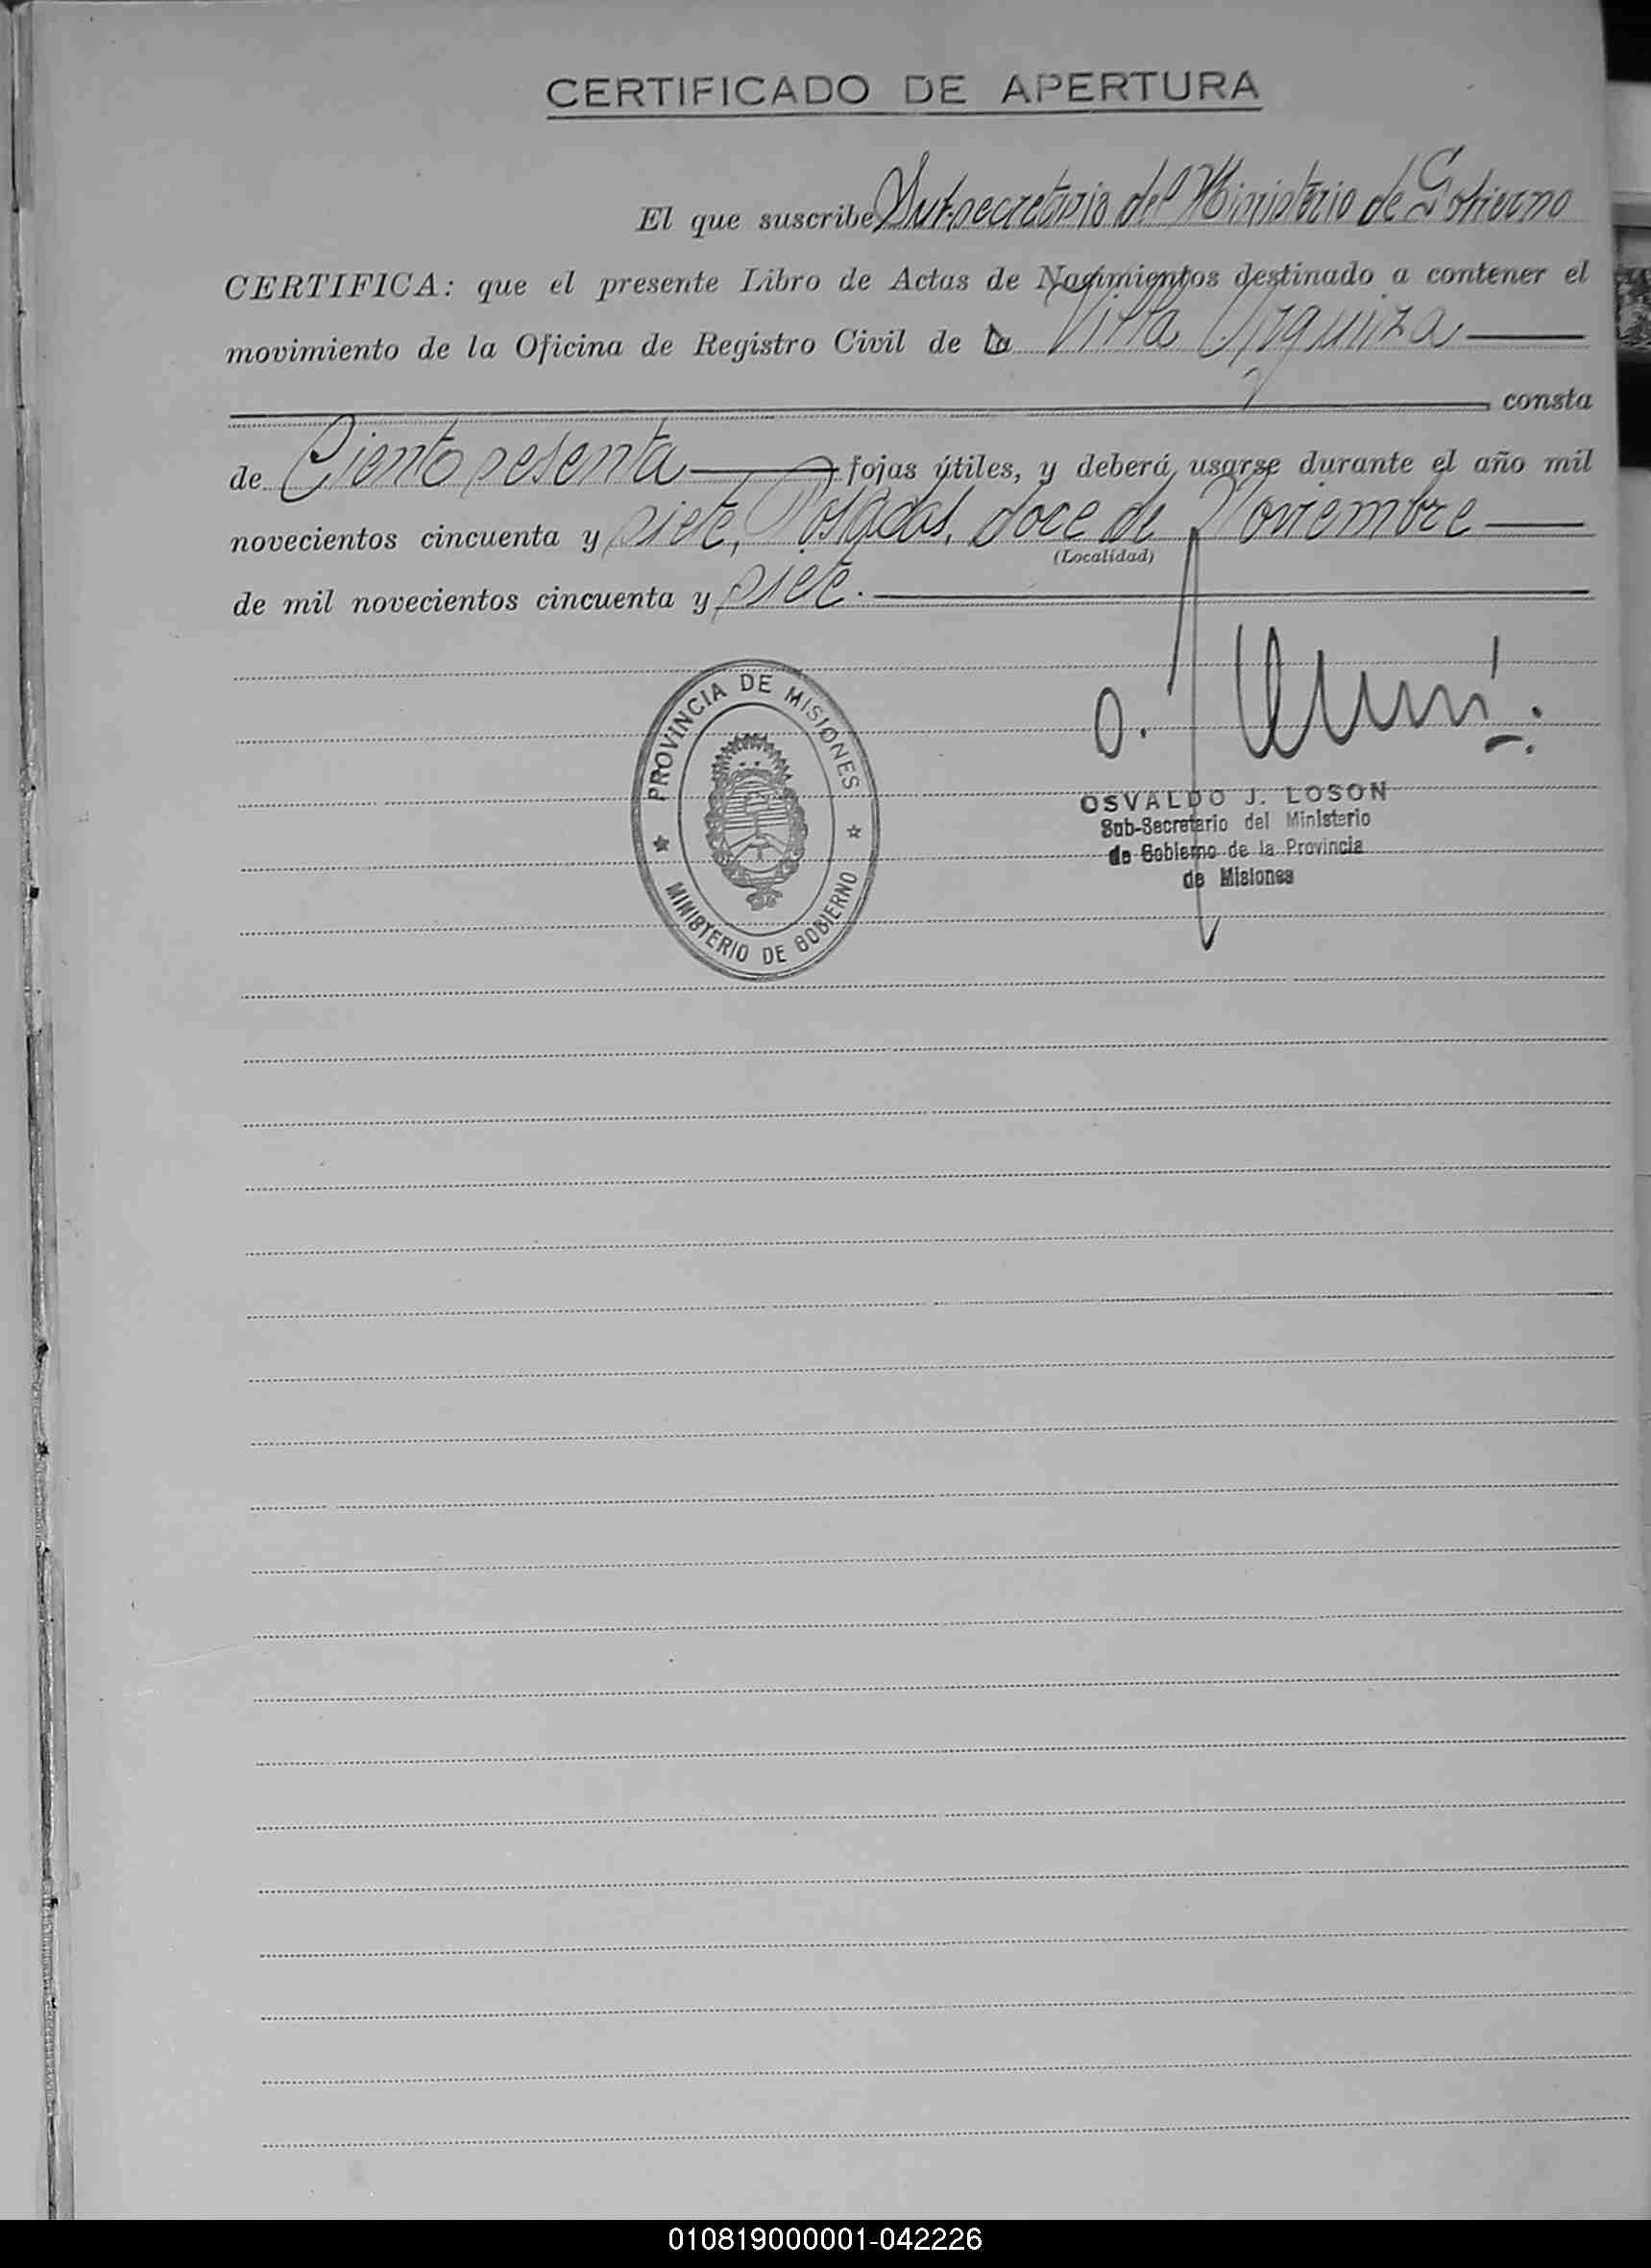 CERTIFICADO DE APERTURA
El que suscribe Sub-secretario del Ministerio de Gobierno
CERTIFICA: que el presente Libro de Actas de Nacimientos destinado a contener el
movimiento de la Oficina de Registro Civil de la Villa Urquiza
consta
de Ciento sesenta fojas útiles, y deberá usarse durante el año mil
novecientos cincuenta y siete, Posadas, doce de Noviembre
(Localidad)
de mil novecientos cincuenta y siete.
PROVINCIA DE MISIONES
MINISTERIO DE GOBIERNO
OSVALDO J. LOSON
Sub-Secretario del Ministerio
de Gobierno de la Provincia
de Misiones
010819000001-042226